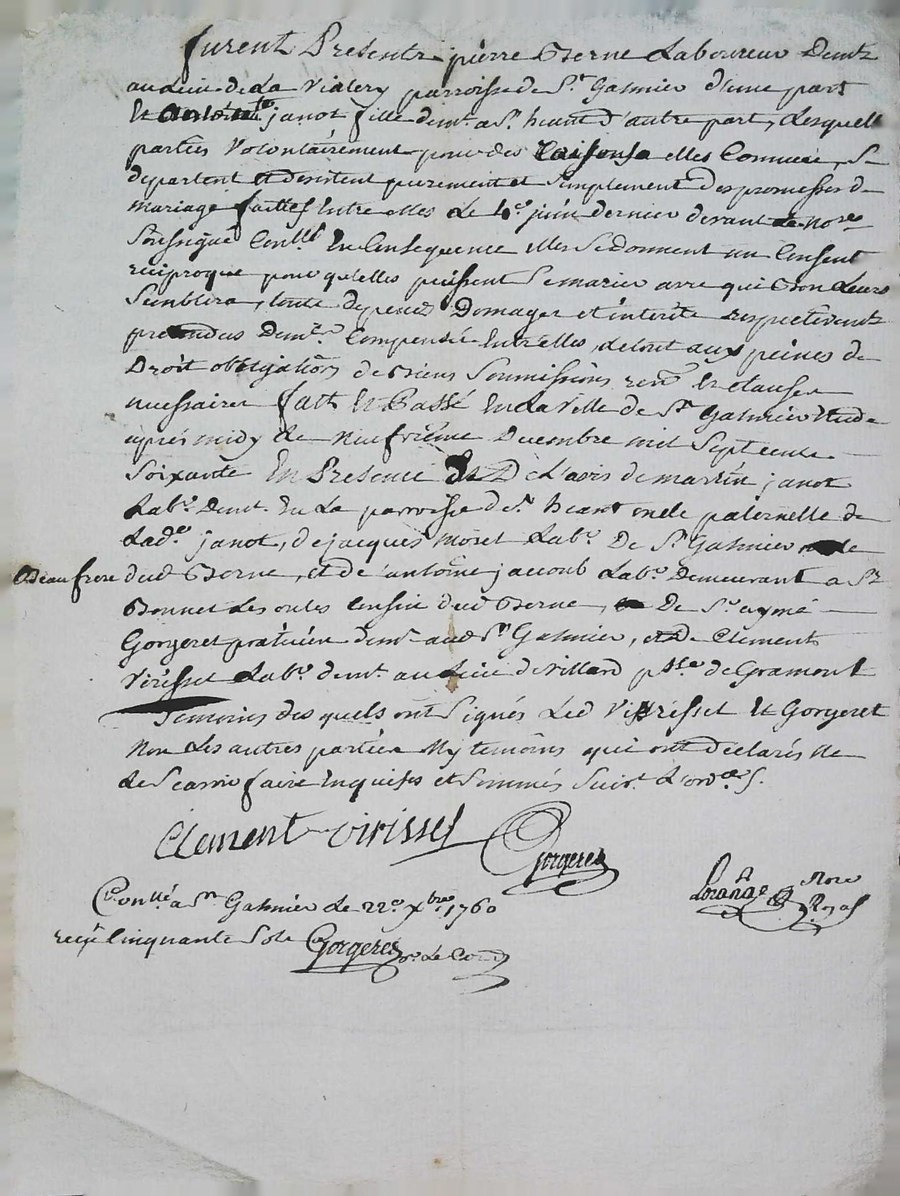 furent Presents pierre Berne Laboureur Demt
au Lieu de La Vialery parroisse de St Galmier d'une part
Et antoinette janot fille demt a St heant d'autre part, Lesquell
parties Volontairement pour des Raisons a elles Connues, Se
departent et desistent purement et simplement des promesses de
mariage faittes Entre elles Le 4e juin dernier devant Le Nore
Soussigné Conllé En Consequence elles se donnent un Consent
reciproque pour qu'elles puissent Se marier avec qui bon Leurs
Semblera, toute depens Domages et interets respectivemt
pretendus demt Compensés Entr'elles, le tout aux peines de
Droit obligations de biens Soumissions renon Et clauses
necessaires fait Et Passé En La Ville de St Galmier Etude
apres midy Le Neufvième Decembre mil Sept cents
Soixante En Presence Et De L'avis de martin janot
Labr Demt En La parroisse de St heant oncle paternelle de
Lade janot, de jacques moret Labr De St Galmier
Beau frere dud Berne, et de l'antoine jacoub Labr Demeurant a St
Bonnet Les oules Cousin dud Berne, De Sr aymé
Gorgeret praticien demt aud St Galmier, et De Clement
Virisset Labr demt au Lieu de Villard psse de Gramont
Temoins des quels ont Signés Led Virisset Et Gorgeret
Non Les autres parties Ny temoins qui ont declarés Ne
Le Scavoir faire Enquis et Sommés Suivt L'ordce S.
Clement virisset
Gorgeret
Lorange Nore Royal
Conllé a St Galmier Le 22e xbre 1760
reçu Cinquante Sols Gorgeret